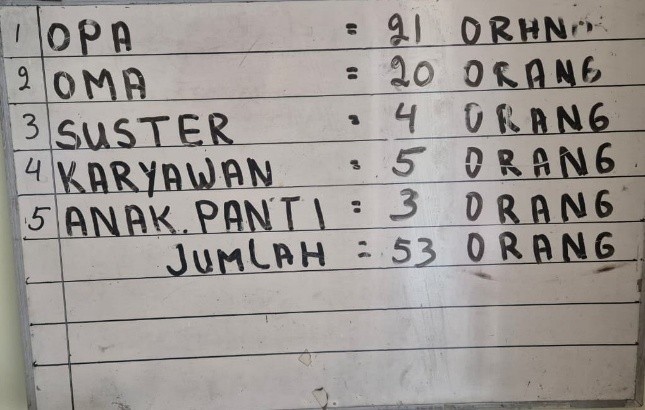 1 OPA = 21 ORHN
2 OMA = 20 ORANG
3 SUSTER = 4 ORANG
4 KARYAWAN = 5 ORANG
5 ANAK. PANTI = 3 ORANG
JUMLAH = 53 ORANG